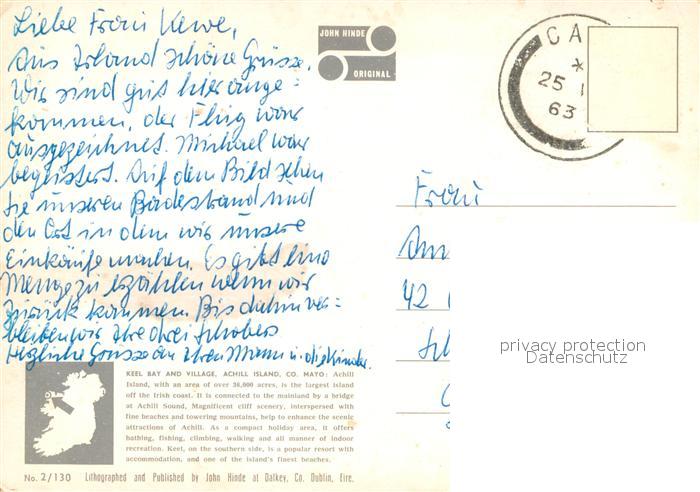 Liebe Frau Kewe,
Aus Irland schöne Grüsse.
Wir sind gut hier ange=
kommen, der Flug war
ausgezeichnet. Michael war
begeistert. Auf dem Bild sehen
Sie unseren Badestrand und
den Ort in dem wir unsere
Einkäufe machen. Es gibt eine
Menge zu erzählen wenn wir
zurück kommen. Bis dahin ver=
bleiben wir Ihre drei Schobers
Herzliche Grüsse an Ihren Mann u. die Kinder.
JOHN HINDE
ORIGINAL
CA
25 I
63
Frau
42
privacy protection
Datenschutz
KEEL BAY AND VILLAGE, ACHILL ISLAND, CO. MAYO: Achill
Island, with an area of over 36,000 acres, is the largest island
off the Irish coast. It is connected to the mainland by a bridge
at Achill Sound, Magnificent cliff scenery, interspersed with
fine beaches and towering mountains, help to enhance the scenic
attractions of Achill. As a compact holiday area, it offers
bathing, fishing, climbing, walking and all manner of indoor
recreation. Keel, on the southern side, is a popular resort with
accommodation, and one of the island's finest beaches.
No. 2/130 Lithographed and Published by John Hinde at Dalkey, Co. Dublin, Eire.